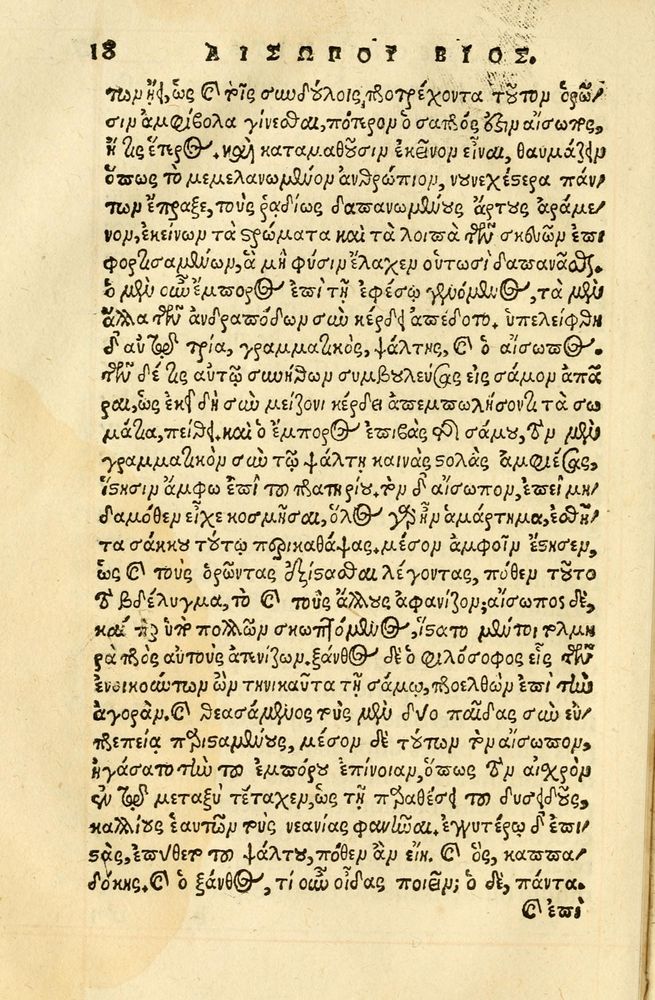 18 ΑΙΣΩΠΟΥ ΒΙΟΣ.
των ᾔει, ὡς καὶ τοῖς συνδούλοις, προτρέχοντα τοῦτον ὁρῶ-
σιν ἀμφίβολα γίνεσθαι, πότερον ὁ σαπρός ἐστιν αἴσωπος,
ἤ τις ἕτερος. καὶ καταμαθοῦσιν ἐκεῖνον εἶναι, θαυμάζειν
ὅπως τὸ μεμελανωμένον ἀνθρώπιον, νουνεχέστερα πάν-
των ἔπραξε, τοὺς ῥαδίως δαπανωμένους ἄρτους ἀράμε-
νον, ἐκείνων τὰ στρώματα καὶ τὰ λοιπὰ τῶν σκευῶν ἐπι
φορτισαμένων, ἃ μὴ φύσιν ἔλαχεν οὑτωσὶ δαπανᾶσθαι.
ὁ μὲν οὖν ἔμπορος ἐπὶ τῇ ἐφέσῳ γενόμενος, τὰ μὲν
ἄλλα τῶν ἀνδραπόδων σὺν κέρδει ἀπέδοτο. ὑπελείφθη
δ' αὐτῷ τρία, γραμματικὸς, ψάλτης, καὶ ὁ αἴσωπος.
τῶν δέ τις αὐτῷ συνήθων συμβουλεύσας εἰς σάμον ἀπᾶ
ραι, ὡς ἐκεῖ δὴ σὺν μείζονι κέρδει ἀπεμπωλήσοντι τὰ σω
μάτια, πείθει. καὶ ὁ ἔμπορος ἐπιβὰς τῆς σάμου, τὸν μὲν
γραμματικὸν σὺν τῷ ψάλτῃ καινὰς στολὰς ἀμφιέσας,
ἵστησιν ἄμφω ἐπὶ τοῦ πρατηρίου. τὸν δ' αἴσωπον, ἐπεὶ μη-
δαμόθεν εἶχε κοσμῆσαι, ὅλος γὰρ ἦν ἁμάρτημα, ἐσθῆ-
τα σάκκου τούτῳ περικαθάψας. μέσον ἀμφοῖν ἔστησεν,
ὡς καὶ τοὺς ὁρῶντας ἐξίστασθαι λέγοντας, πόθεν τοῦτο
τὸ βδέλυγμα, τὸ καὶ τοὺς ἄλλους ἀφανίζον; αἴσωπος δὲ,
καί περ ὑπὸ πολλῶν σκωπτόμενος, ἵστατο μέντοι τολμη
ρὰ πρὸς αὐτοὺς ἀτενίζων. ξάνθος δὲ ὁ φιλόσοφος εἷς τῶν
ἐνοικούντων ὢν τηνικαῦτα τῇ σάμῳ, προελθὼν ἐπὶ τὴν
ἀγορὰν. καὶ θεασάμενος τοὺς μὲν δύο παῖδας σὺν εὐ-
πρεπείᾳ πρισταμένους, μέσον δὲ τούτων τὸν αἴσωπον,
ἠγάσατο τὴν τοῦ ἐμπόρου ἐπίνοιαν, ὅπως τὸν αἰσχρὸν
ἐν τῷ μεταξὺ τέταχεν, ὡς τῇ παραθέσει τοῦ δυσειδοῦς,
καλλίους ἑαυτῶν τοὺς νεανίας φανῆναι. ἐγγυτέρω δ' ἐπι-
στὰς, ἐπύθετο τοῦ ψάλτου, πόθεν ἂν εἴη. καὶ ὃς, καππα-
δόκης. καὶ ὁ ξάνθος, τί οὖν οἶδας ποιεῖν; ὁ δὲ, πάντα.
καὶ ἐπὶ